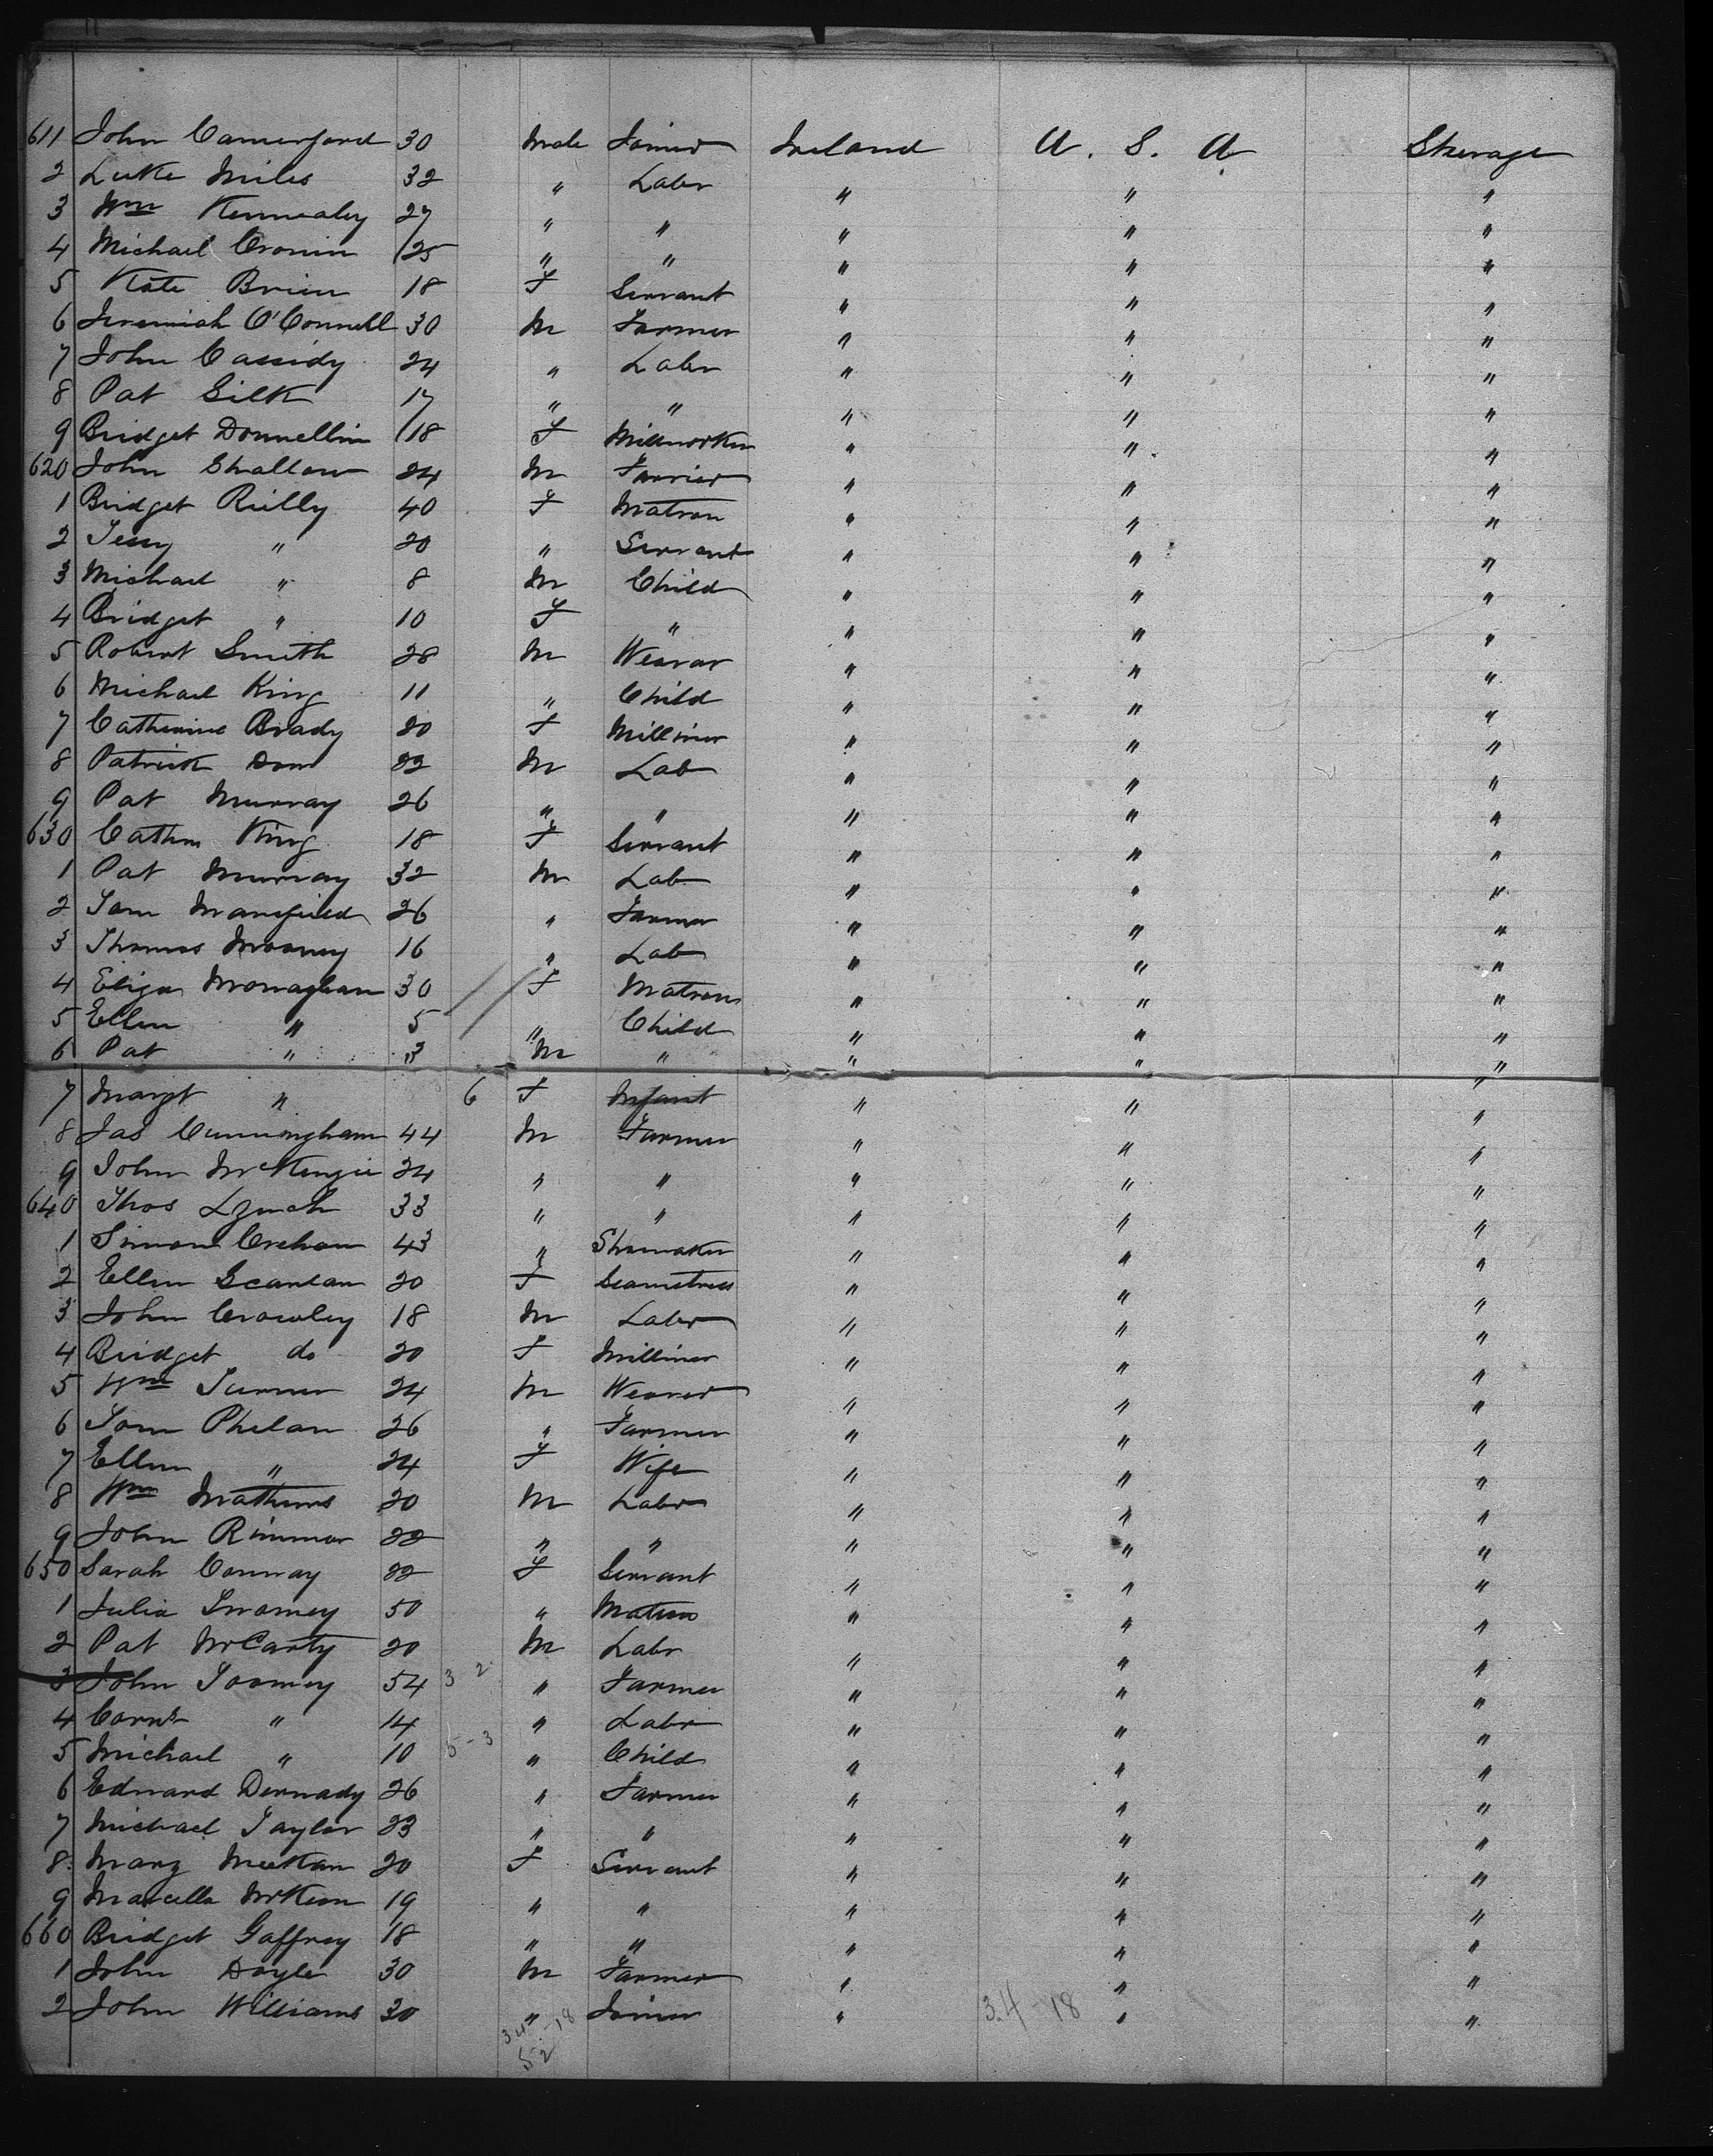 611 John Camerford 30 Male Joiner Ireland U. S. A Steerage
2 Luke Miles 32 " Labr " " "
3 Wm Kennealy 27 " " " " "
4 Michael Cronin 25 " " " " "
5 Kate Brien 18 F Servant " " "
6 Jeremiah O'Connell 30 M Farmer " " "
7 John Cassidy 24 " Labr " " "
8 Pat Silk 17 " " " " "
9 Bridget Donnellin 18 F Millworker " " "
620 John Shallow 24 M Farrier " " "
1 Bridget Reilly 40 F Matron " " "
2 Jessy " 20 " Servant " " "
3 Michael " 8 M Child " " "
4 Bridget " 10 F " " " "
5 Robert Smith 28 M Weaver " " "
6 Michael King 11 " Child " " "
7 Catherine Brady 20 F Milliner " " "
8 Patrick 22 M Lab " " "
9 Pat Murray 26 " " " " "
630 Cathn King 18 F Servant " " "
1 Pat Murray 32 M Lab " " "
2 Tom Mansfield 26 " Farmer " " "
3 Thomas Mooney 16 " Lab " " "
4 Eliza Monaghan 30 F Matron " " "
5 Ellen " 5 " Child " " "
6 Pat " 3 M " " " "
7 Margt " 6 F Infant " " "
8 Jas Cunningham 44 M Farmer " " "
9 John McKenzie 24 " " " " "
640 Thos Lynch 33 " " " " "
1 Simon Crehan 43 " Shoemaker " " "
2 Ellen Scanlan 20 F Seamstress " " "
3 John Crowley 18 M Labr " " "
4 Bridget do 20 F Milliner " " "
5 Wm Turner 24 M Weaver " " "
6 Tom Phelan 26 " Farmer " " "
7 Ellen " 24 F Wife " " "
8 Wm Mathews 20 M Labr " " "
9 John Rimmer 22 " " " " "
650 Sarah Conway 22 F Servant " " "
1 Julia Twomey 50 " Matron " " "
2 Pat McCarty 20 M Labr " " "
3 John Toomey 54 3 2 " Farmer " " "
4 Corns " 14 " Labr " " "
5 Michael " 10 5-3 " Child " " "
6 Edward Dermady 26 " Farmer " " "
7 Michael Taylor 23 " " " " "
8 Mary Meekan 20 F Servant " " "
9 Marcella McKeon 19 " " " " "
660 Bridget Gaffney 18 " " " " "
1 John Doyle 30 M Farmer " " "
2 John Williams 30 " Joiner " 34-18 " "
34-18
52